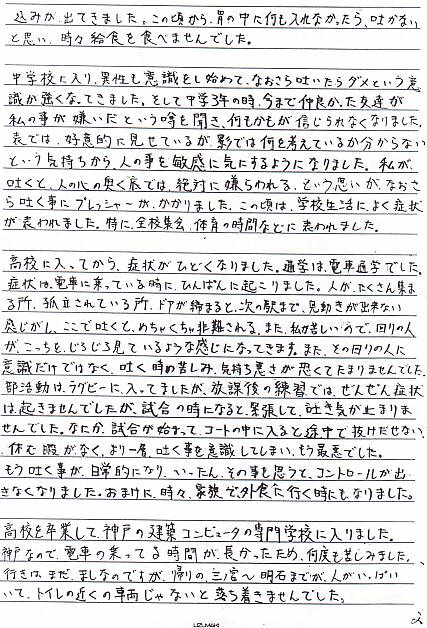 込みが出てきました。この頃から、胃の中に何も入れなかったら、吐かない
と思い、時々給食を食べませんでした。
中学校に入り、異性も意識をし始めて、なおさら吐いたらダメという意
識が強くなってきました。そして中学3年の時、今まで仲良かった友達が
私の事が嫌いだという噂を聞き、何もかもが信じられなくなりました。
表では、好意的に見せているが、影では何を考えているか分からない
という気持ちから、人の事を敏感に気にするようになりました。私が、
吐くと、人の心の奥く底では、絶対に嫌らわれる、という思いが、なおさ
ら吐く事にプレッシャーが、かかりました。この頃は、学校生活に、よく症状
が表われました。特に、全校集会、体育の時間などに表われました。
高校に入ってから、症状がひどくなりました。通学は、電車通学でした。
症状は、電車に乗っている時に、ひんぱんに起こりました。人が、たくさん集ま
る所、孤立されている所、ドアが締まると、次の駅まで、身動きが出来ない
感じがし、ここで吐くと、めちゃくちゃ非難される、また、私が苦しいので、回りの人
が、こっちを、じろじろ見ているような感じになってきます。また、その回りの人に
意識だけではなく、吐く時の苦しみ、気持ち悪さが恐くてたまりませんでした。
部活動は、ラグビーに、入ってましたが、放課後の練習では、ぜんぜん症状
は、起きませんでしたが、試合の時になると、緊張して、吐き気が止まりま
せんでした。なにか、試合が始まって、コートの中に入ると途中で抜けだせない、
休む暇がなく、より一層、吐く事を意識してしまい、もう最悪でした。
もう吐く事が、日常的になり、いったん、その事も思うと、コントロールが出
きなくなりました。おまけに、時々、家族で外食に行く時にもなりました。
高校を卒業して、神戸の建築コンピュータの専門学校に入りました。
神戸なので、電車の乗ってる時間が、長かったため、何度も苦しみました。
行きは、まだ、ましなのですが、帰りの、三宮〜明石までが、人がいっぱい
いて、トイレの近くの車両じゃないと落ち着きませんでした。
2